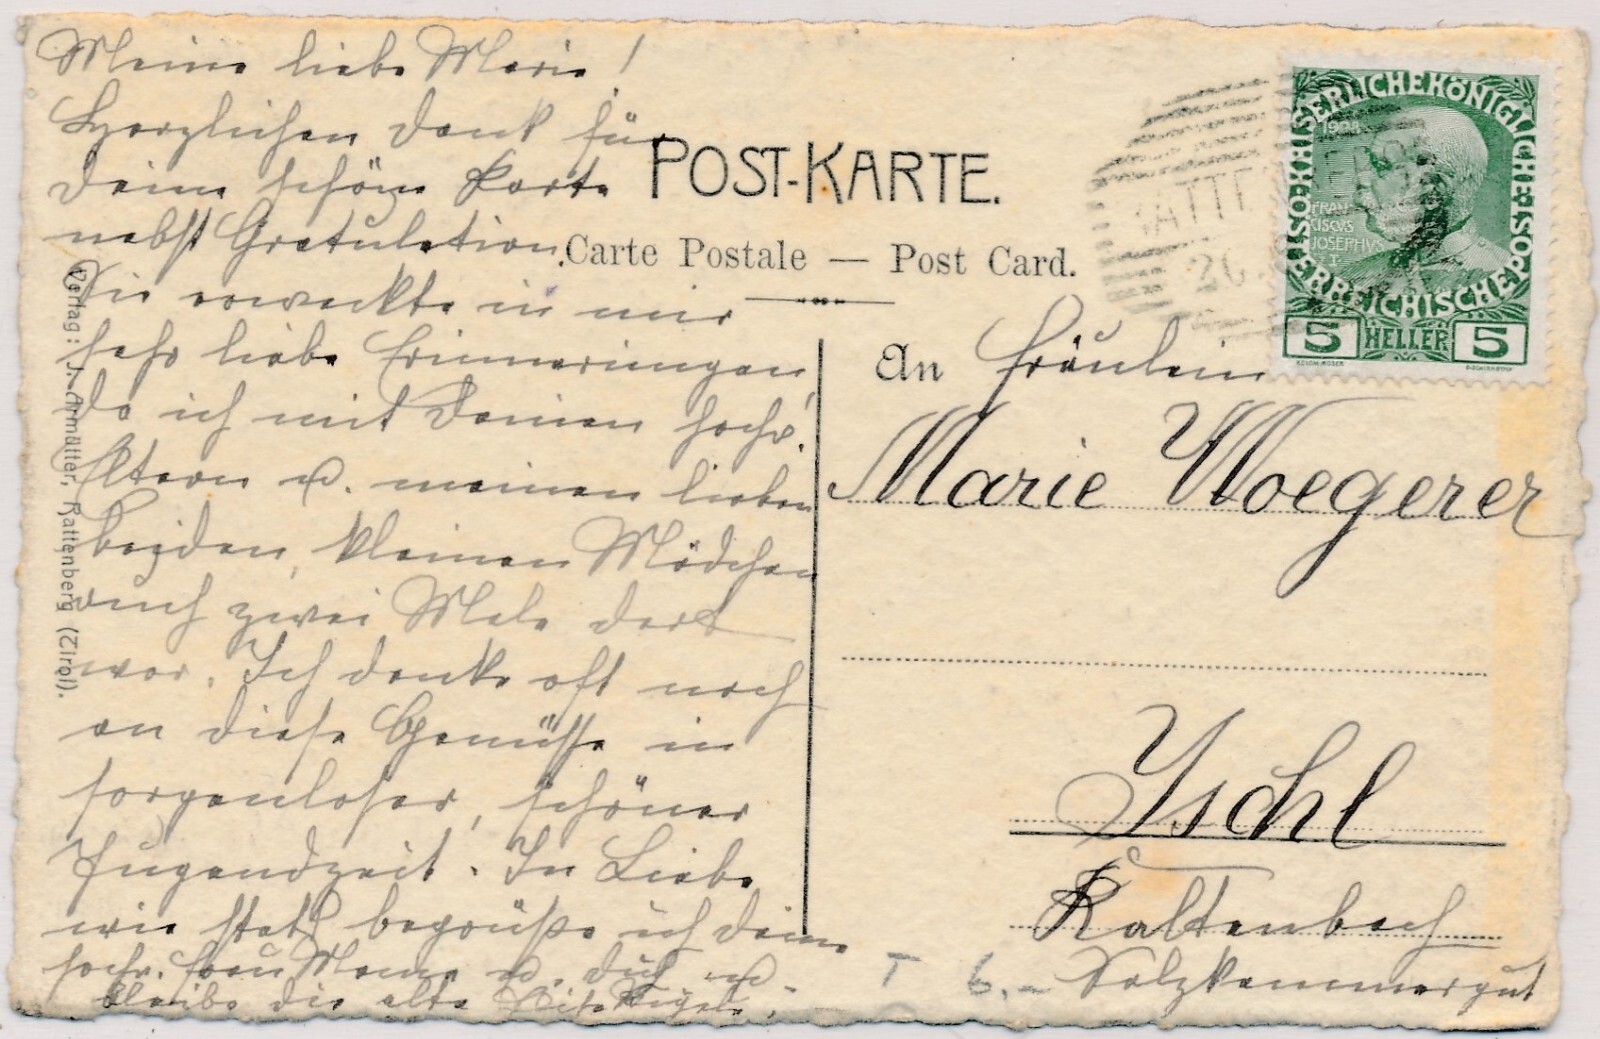 Meine liebe Marie!
Herzlichen Dank für
Deine schöne Karte
nebst Gratulation.
Sie erweckte in mir
sehr liebe Erinnerungen,
da ich mit Deinen hochv.
Eltern u. meinen lieben
beiden, kleinen Mädchen
auch zwei Male dort
war. Ich denke oft noch
an diese Genüsse in
sorgenloser, schöner
Jugendzeit. In Liebe
wie stets begrüße ich Deine
hochv. Frau Mama u. Dich u.
bleibe die alte
POST-KARTE.
Carte Postale — Post Card.
Verlag: J. Armütter, Rattenberg (Tirol).
KAISERLICHEKÖNIGLICHE
ÖSTERREICHISCHE POST
1908
FRAN
CISCVS
JOSEPHVS
I
5 HELLER 5
RATTE
26
An Fräulein
Marie Woegerer
Ischl
Kaltenbach
Salzkammergut
T 6.-